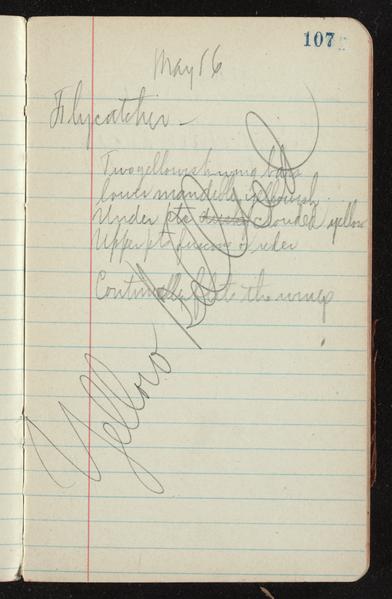 107
May 16
Flycatcher —
Two yellowish wing bars
lower mandible yellowish
Under pts dusky clouded yellow
Upper pts
Continually the wings
Yellow Bellied